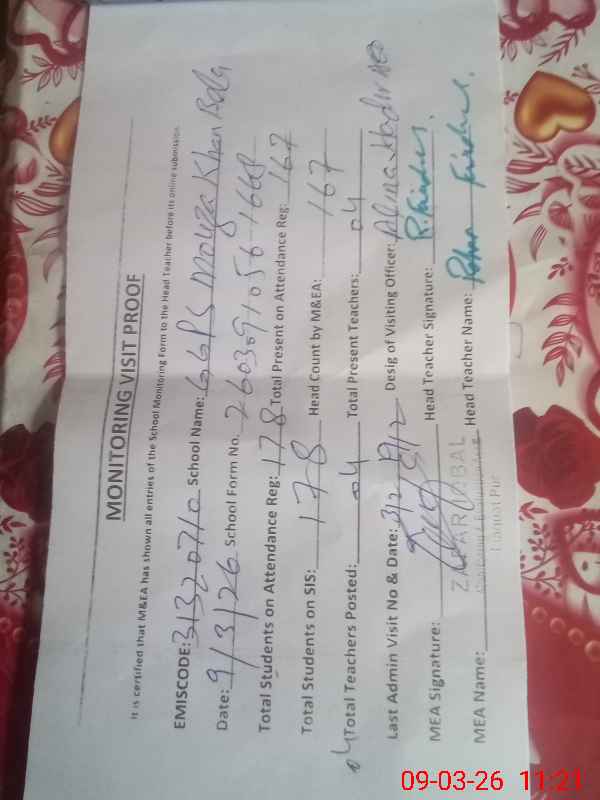 MONITORING VISIT PROOF
It is certified that M&EA has shown all entries of the School Monitoring Form to the Head Teacher before its online submission.
EMISCODE: 31320710 School Name: GGPS Mouza Khan Bela
Date: 9/3/26 School Form No. 2603091056 1668
Total Students on Attendance Reg: 178 Total Present on Attendance Reg: 167
Total Students on SIS: 178 Head Count by M&EA: 167
04 Total Teachers Posted: 04 Total Present Teachers: 04
Last Admin Visit No & Date: Desig of Visiting Officer: AEO
MEA Signature: Head Teacher Signature: R. Firdus.
MEA Name: ZAFAR IQBAL Head Teacher Name: Firdus.
Liaquat Pur
09-03-26 11:21